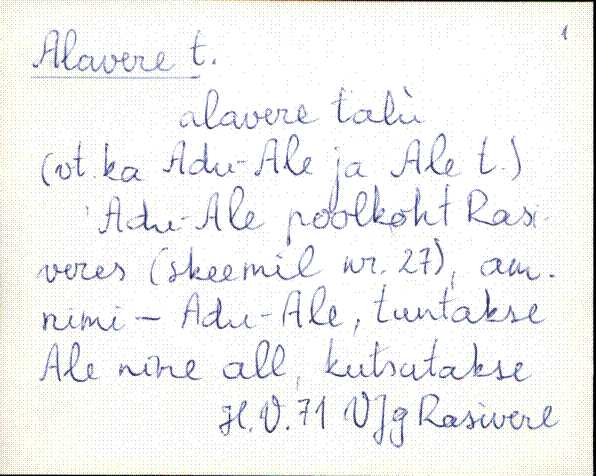 1
Alavere t.
alavere talù
(vt. ka Adu-Ale ja Ale t.)
Adu-Ale poolkoht Rasi-
veres (skeemil nr. 27), am.
nimi - Adu-Ale, tuntakse
Ale nime all, kutsutakse
H.V. 71 VJg Rasivere